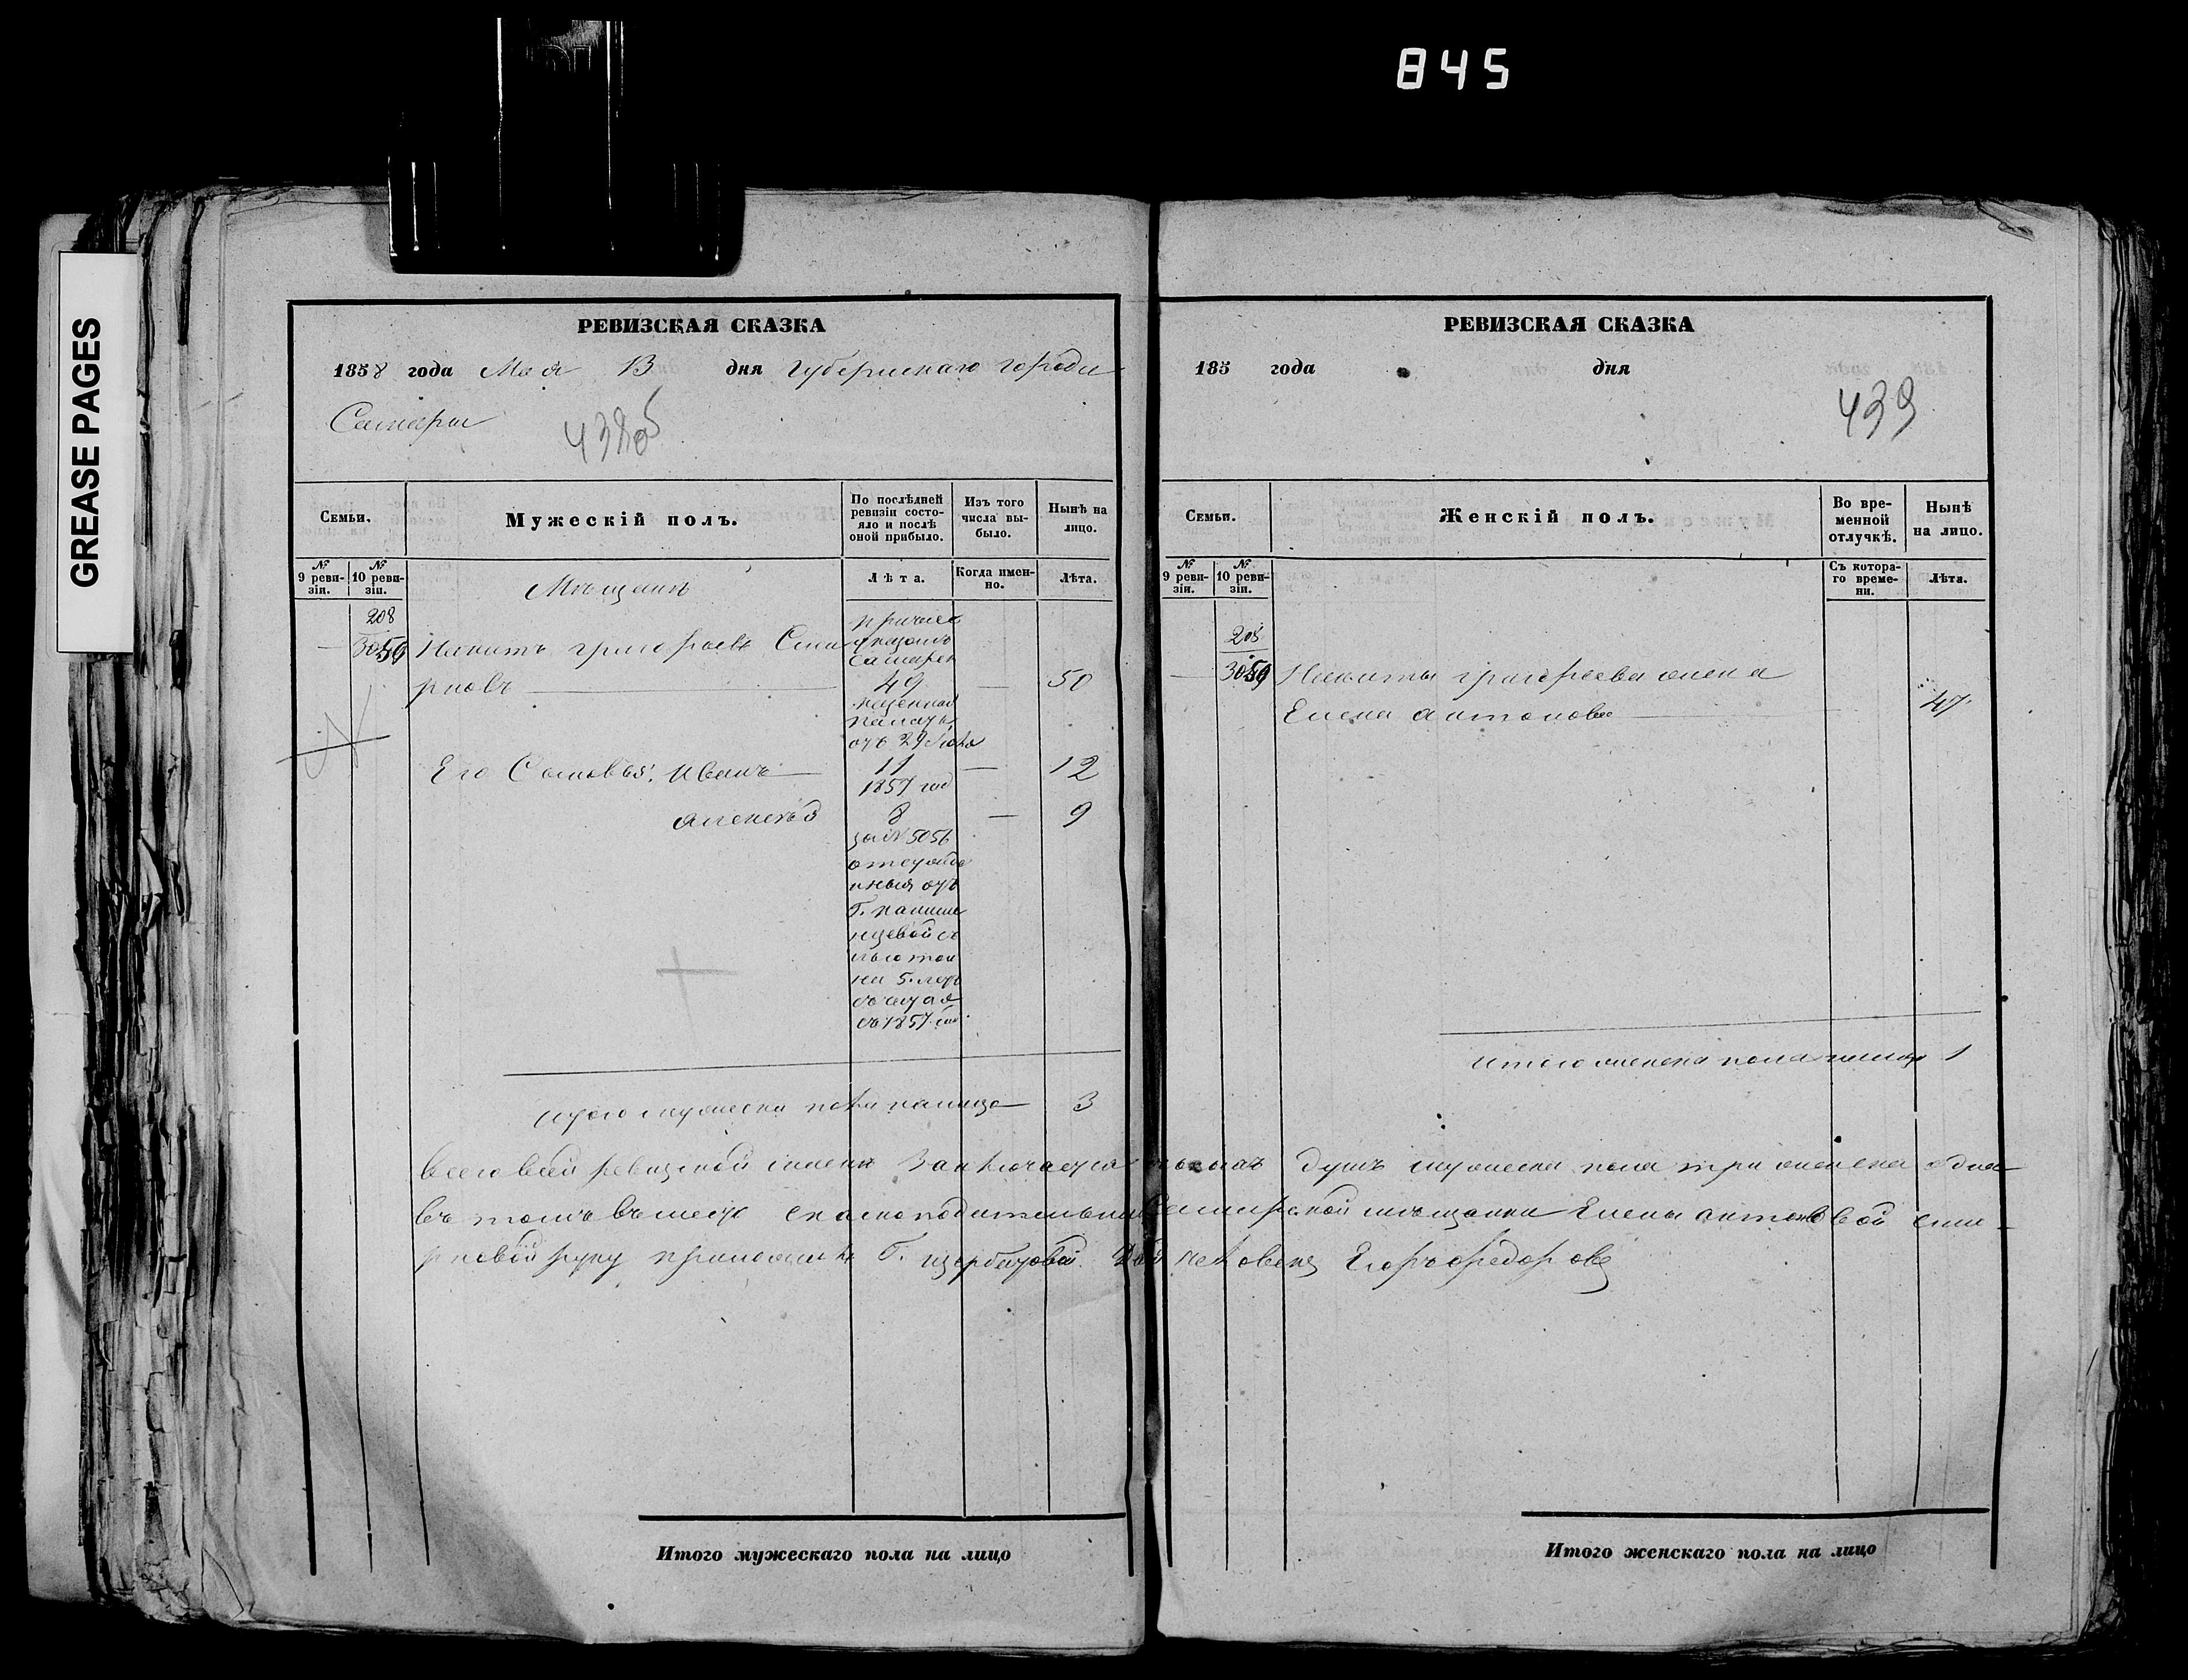 845
GREASE PAGES
РЕВИЗСКАЯ СКАЗКА
1858 года Мая 13 дня Губернскаго города
Самары
438об
Семьи.
Мужескій полъ.
По послѣдней ревизіи состояло и послѣ оной прибыло.
Изъ того числа выбыло.
Нынѣ на лицо.
№ 9 ревизіи.
№ 10 ревизіи.
Мѣщанъ
Лѣта.
Когда именно.
Лѣта.
208
Никита Григорьевъ Сми
рновъ
49
—
50
Его Сыновья: Иванъ
11
—
12
Алексѣй
8
—
9
казенной
палаты
отъ 29
1857 год
за № 5056
отъ
на 5. летъ
считая
съ 1857 год
Итого мужеска пола налицо 3
РЕВИЗСКАЯ СКАЗКА
185 года дня
439
Семьи.
Женскій полъ.
Во временной отлучкѣ.
Нынѣ на лицо.
№ 9 ревизіи.
№ 10 ревизіи.
Съ котораго времени.
Лѣта.
208
Никиты Григорьева жена
Елена Антонова
47
Итого женска пола налицо 1
Всего въ сей ревизской сказки заключается душъ мужеска пола три женска одна
Самарской мѣщанки Елены Антоновой Сми-
рновой руку приложилъ Г. Щербатовой Человекъ Егоръ Федоровъ
Итого мужескаго пола на лицо
Итого женскаго пола на лицо